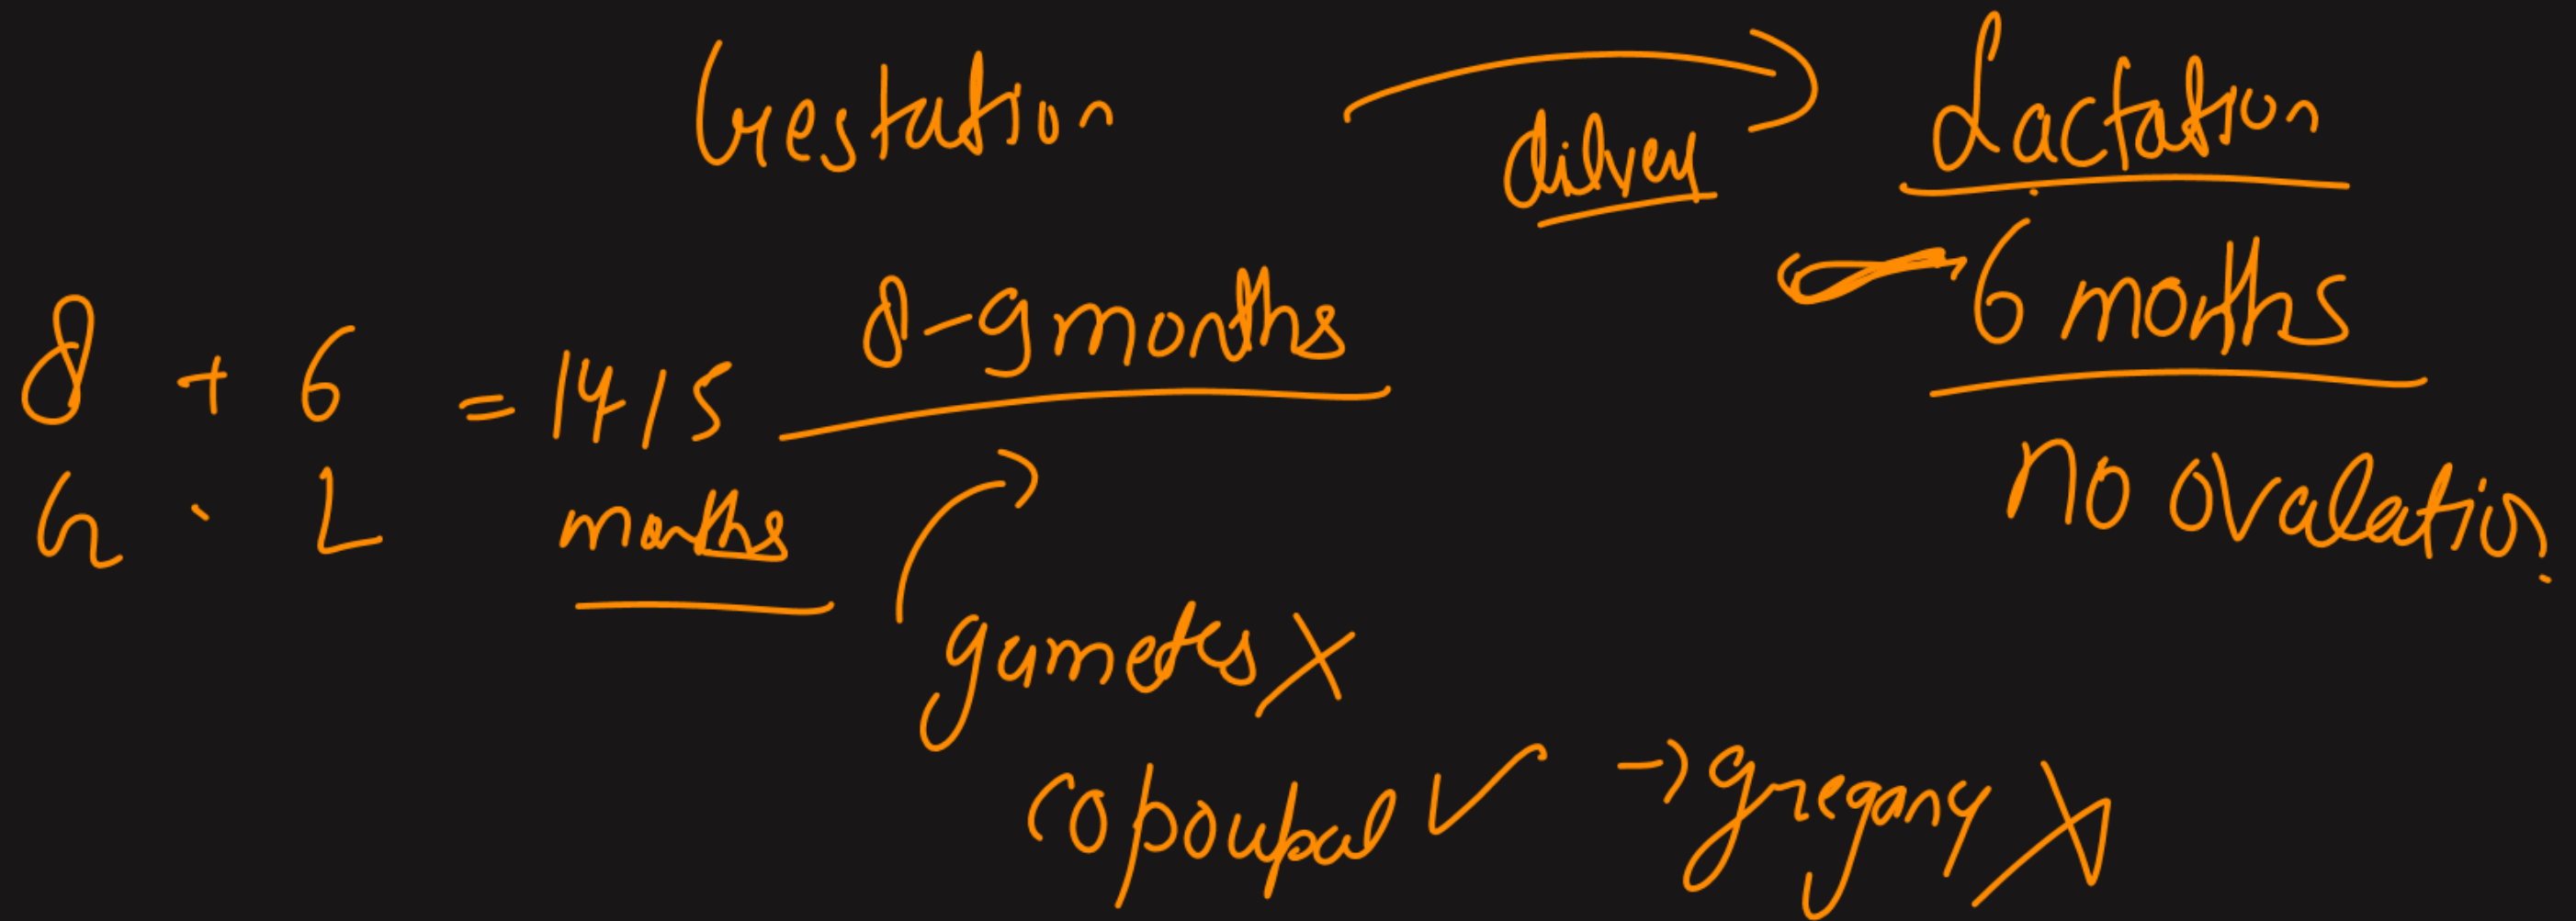 Gestation
dilvery
Lactation
8-9 months
6 months
8 + 6 = 14/15
G . L months
no ovalation
gametes X
✓ → X